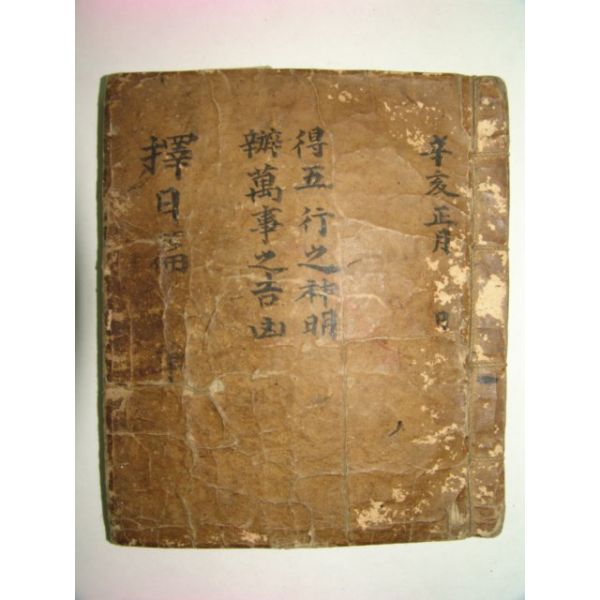 辛亥正月 日
得五行之神明
辦萬事之吉凶
擇日篇